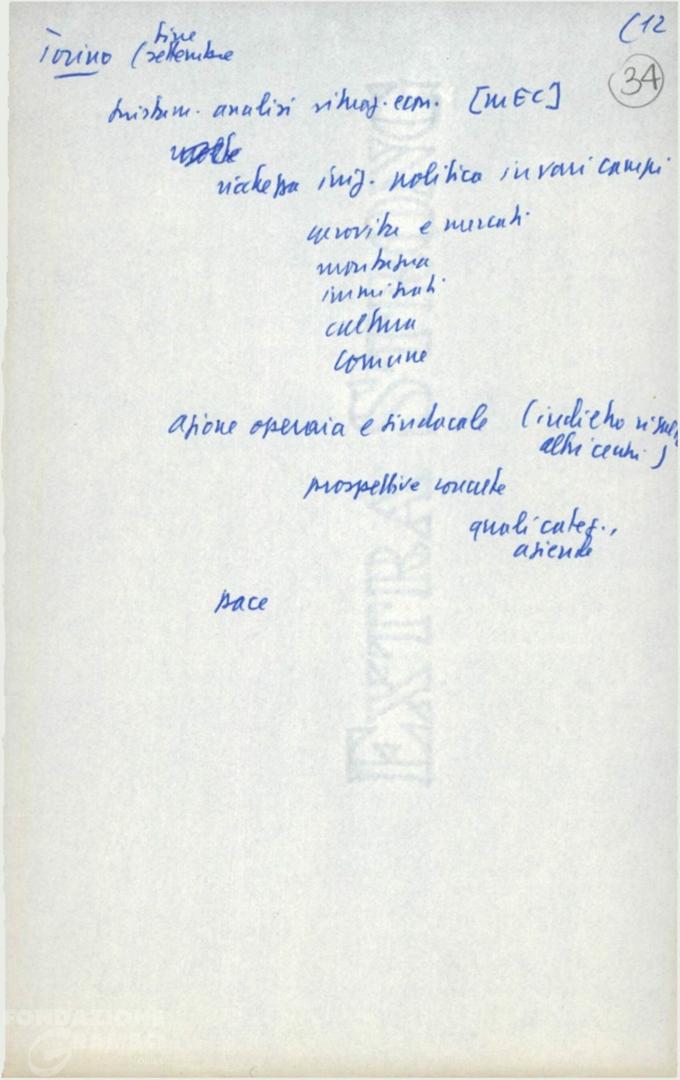 (12
34
Torino (fine
settembre
analisi situaz. econ. [MEC]
ricchezza iniz. politica in vari campi
e mercati
montagna
immigrati
cultura
comune
azione operaia e sindacale (indietro
altri centri)
prospettive concrete
quali categ.,
aziende
pace
EXTRA STRONG
FONDAZIONE
GRAMSCI